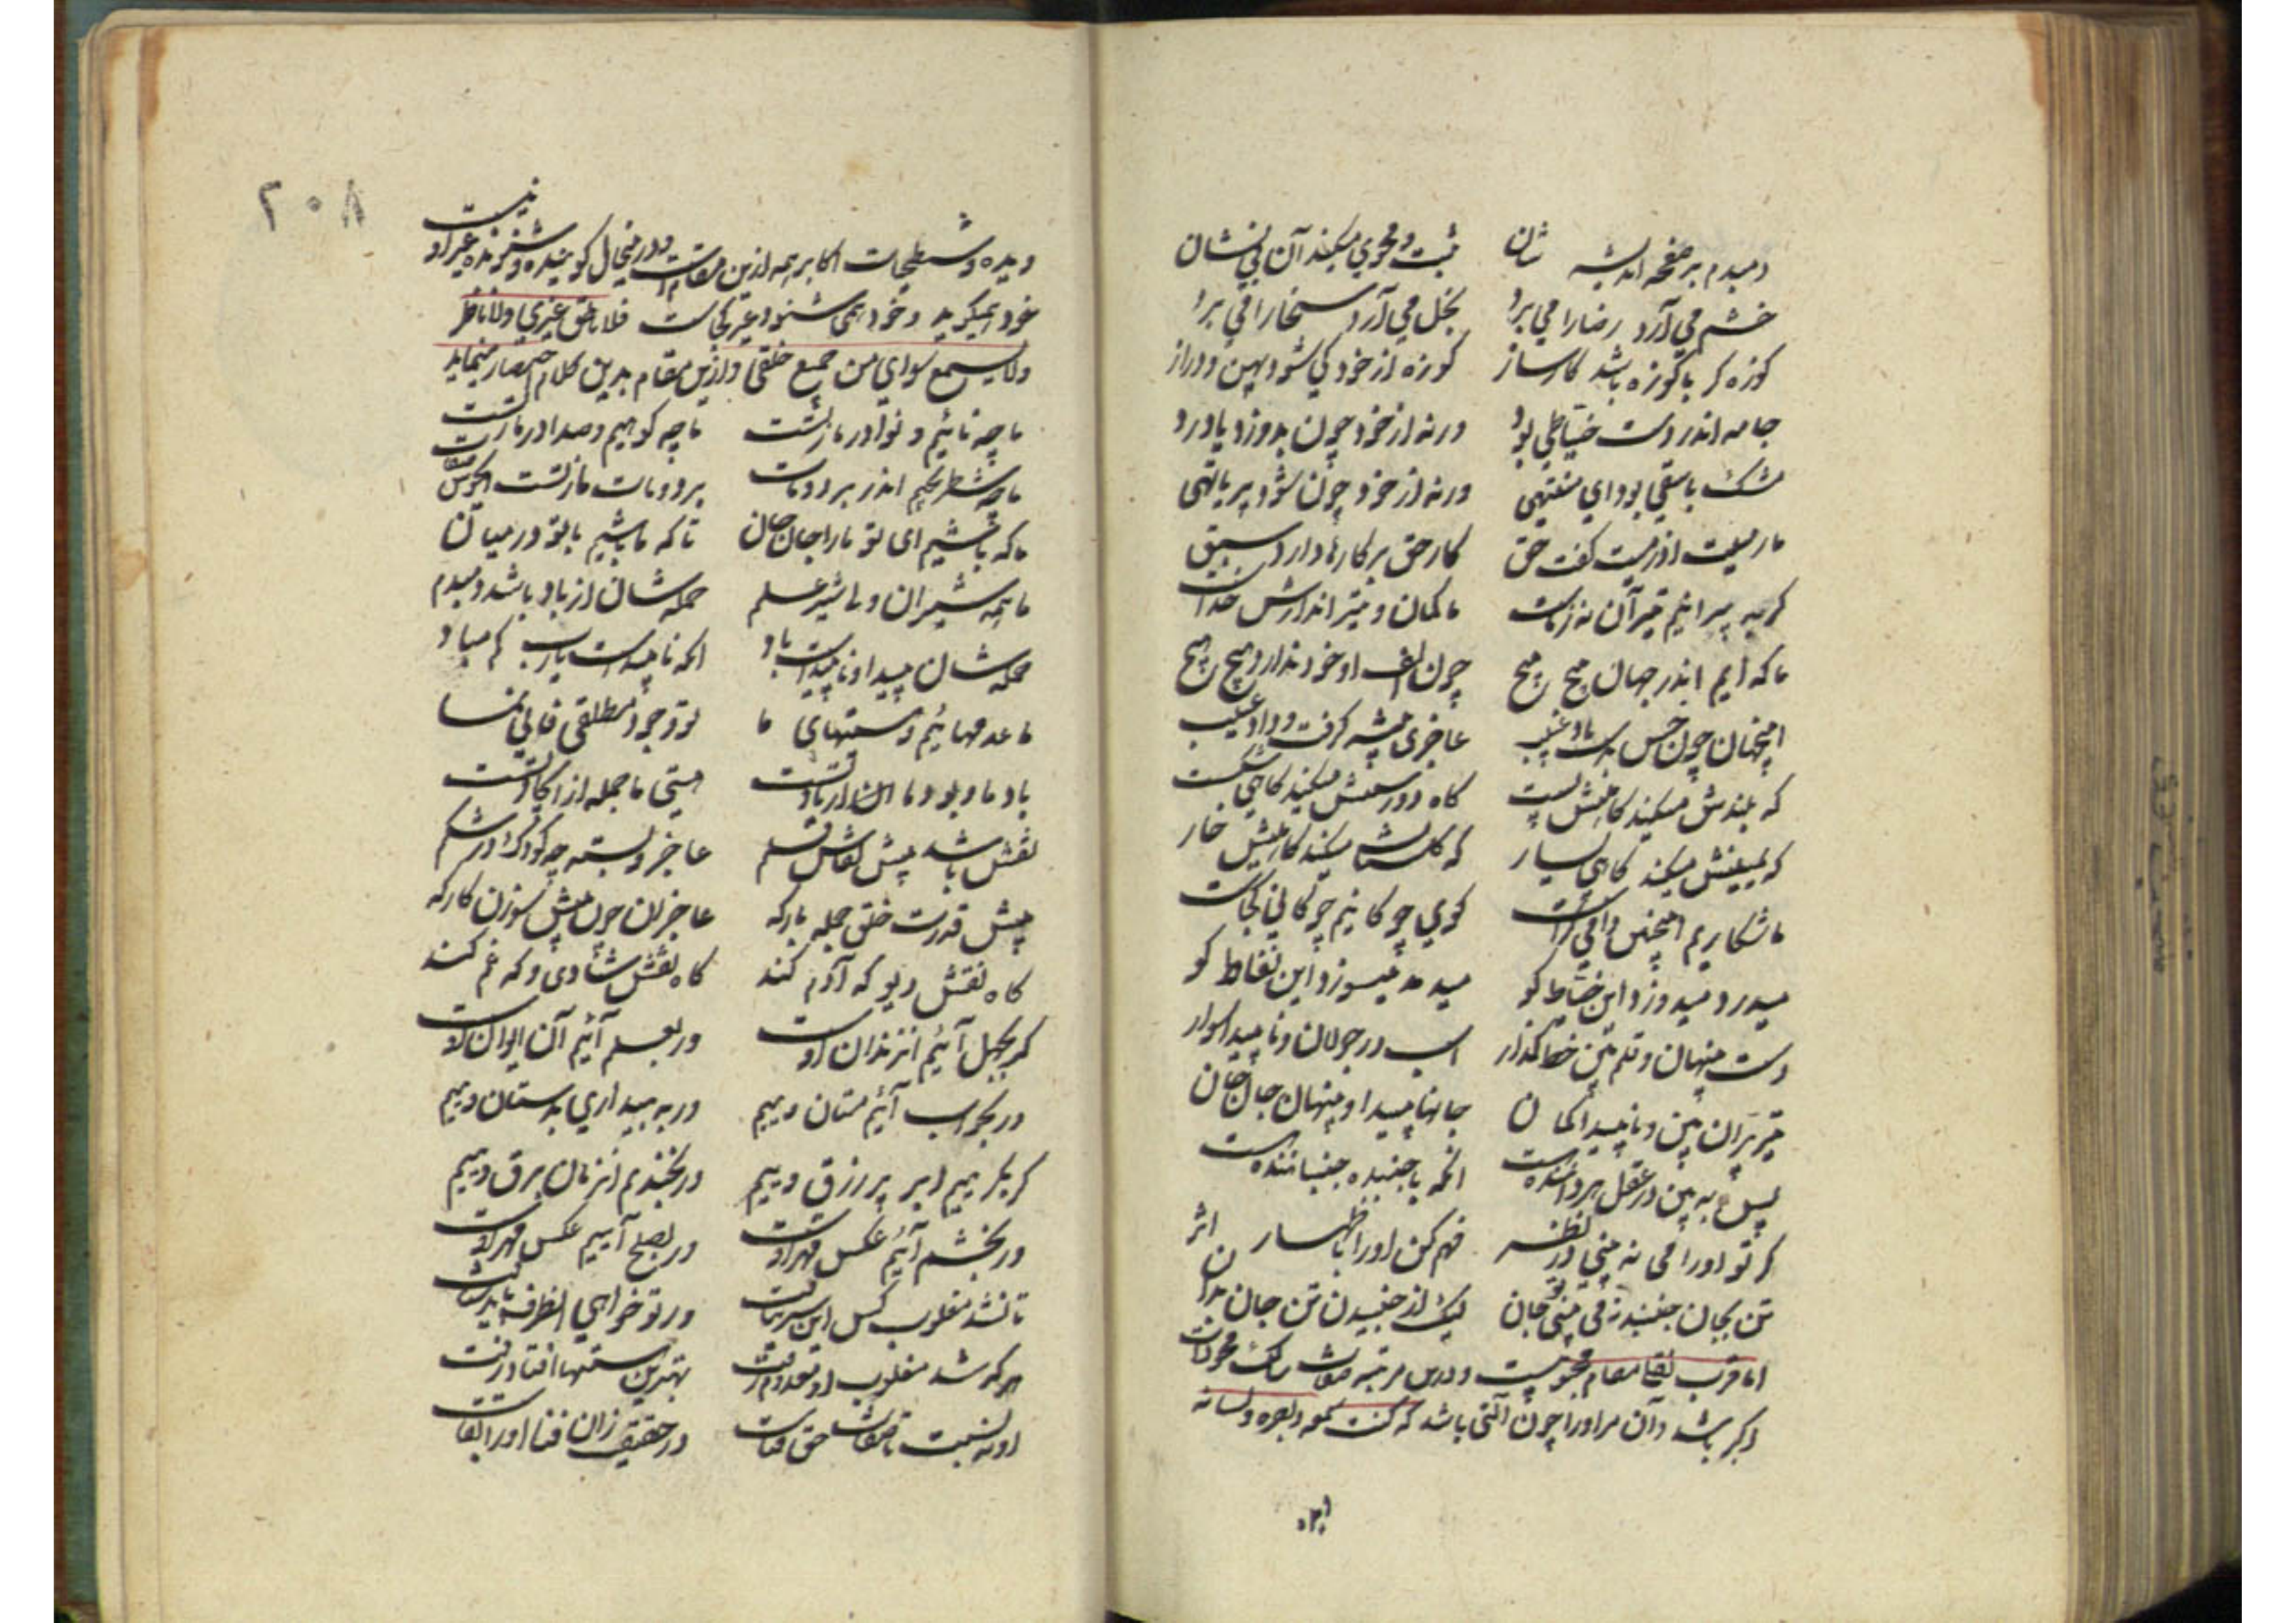 دمبدم بر صفحه اندیشه شان ثبت و محوی میکند آن بی نشان
خشم می آرد رضا را می برد بخل می آرد سخا را می برد
کوزه گر با کوزه باشد کارساز کوزه از خود کی شود پهن و دراز
جامه اندر دست خیاطی بود ورنه از خود چون بدوزد یا درد
مشک با سقی بود ای منتهی ورنه از خود چون شود پر یا تهی
ما رمیت اذ رمیت گفت حق کار حق بر کارها دارد سبق
گر به پرانیم تیر آن نه زماست ما کمان و تیراندازش خداست
ما که ایم اندر جهان پیچ پیچ چون الف او خود ندارد هیچ هیچ
اینچنان چون خس بدست باد غیب عاجزی پیشه گرفت و داد غیب
که بلندش میکند گاهیش پست گاه درستش میکند گاهی شکست
که یمینش میکند گاهی یسار که گلستانش میکند گاهیش خار
ما شکاریم اینچنین دامی کراست گوی چوگانیم چوگانی کجاست
میدرد میدوزد این خیاط کو میدمد میسوزد این نفاط کو
دست پنهان و قلم بین خط گذار اسب در جولان و ناپیدا سوار
تیر پران بین و ناپیدا کمان جانها پیدا و پنهان جان جان
پس به بین در عقل هر داننده است آنکه با جنبیده جنباننده است
گر تو او را می نه بینی در نظر فهم کن او را باظهار اثر
تن بجان جنبد نمی بینی تو جان لیک از جنبیدن تن جان بدان
اما قرب لقا مقام محبوبیت و درین مرتبه صفات سالک محو ذات
اکبر باشد و آن مر او را چون آلتی باشد که کنت سمعه و بصره و لسانه
۲۰۸
دیده و شطحیات اکابر همه ازین مقامست و درینحال گوینده و شنونده غیر او نیست
خود همیگوید و خود همی شنود غیر کجاست فلا ناطق غیری ولا ناظر
ولا سامع سوای من جمیع خلقی و ازین مقام بدین کلام اختصار مینماید
ما چو نائیم و نوا در ما ز تست ما چو کوهیم و صدا در ما ز تست
ما چو شطرنجیم اندر برد و مات برد و مات ما ز تست ای خوش صفات
ما که باشیم ای تو ما را جان جان تا که ما باشیم با تو در میان
ما همه شیران ولی شیر علم حمله شان از باد باشد دمبدم
حمله شان پیدا و ناپیداست باد آنکه ناپیداست یارب کم مباد
ما عدمهائیم و هستیهای ما تو وجود مطلقی فانی نما
باد ما و بود ما از داد تست هستی ما جمله از ایجاد تست
نقش باشد پیش نقاش و قلم عاجز و بسته چو کودک در شکم
پیش قدرت خلق جمله بارگه عاجزان چون پیش سوزن کارگه
گاه نقش دیو گه آدم کند گاه نقش شادی و گه غم کند
گر بجهل آئیم آن زندان اوست ور بعلم آئیم آن ایوان اوست
ور بخواب آئیم مستان وییم ور به بیداری بدستان وییم
گر بگرییم ابر پر رزق وییم ور بخندیم آن زمان برق وییم
ور بخشم آئیم عکس قهر اوست ور بصلح آییم عکس مهر اوست
تا نشد مغلوب کس این سر نیافت ور تو خواهی آنطرف باید شتافت
هر که شد مغلوب او معدوم نیست بهترین هستیها افتاد و رفت
او به نسبت با صفات حق فناست در حقیقت زان فنا او را بقاست